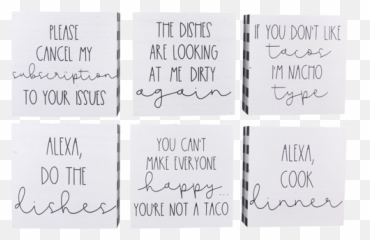 PLEASE
CANCEL MY
subscription
TO YOUR ISSUES
THE DISHES
ARE LOOKING
AT ME DIRTY
again
IF YOU DON'T LIKE
tacos
I'M NACHO
type
ALEXA,
DO THE
dishes
YOU CAN'T
MAKE EVERYONE
happy...
YOU'RE NOT A TACO
ALEXA,
COOK
dinner